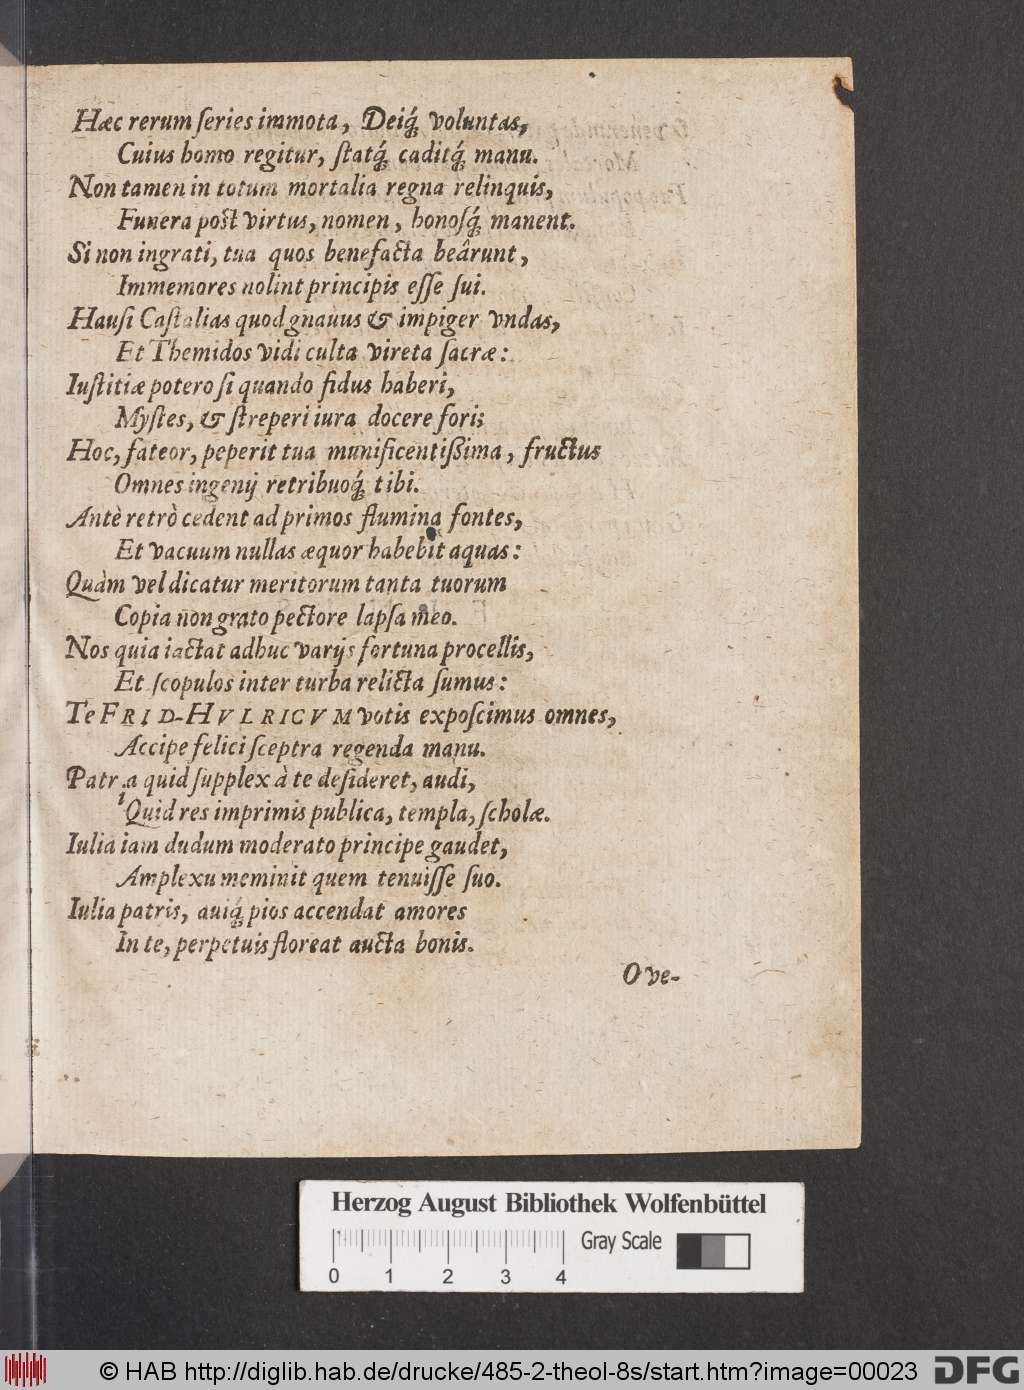 Hæc rerum ſeries immota, Deiq́; voluntas,
Cuius homo regitur, ſtatq́; caditq́; manu.
Non tamen in totum mortalia regna relinquis,
Funera poſt virtus, nomen, honoſq́; manent.
Si non ingrati, tua quos benefacta beârunt,
Immemores nolint principis eſſe ſui.
Hauſi Caſtalias quod gnauus & impiger vndas,
Et Themidos vidi culta vireta ſacræ:
Iuſtitiæ potero ſi quando fidus haberi,
Myſtes, & ſtreperi iura docere fori;
Hoc, fateor, peperit tua munificentiſsima, fructus
Omnes ingenij retribuoq́; tibi.
Antè retrò cedent ad primos flumina fontes,
Et vacuum nullas æquor habebit aquas:
Quàm vel dicatur meritorum tanta tuorum
Copia non grato pectore lapſa meo.
Nos quia iactat adhuc varijs fortuna procellis,
Et ſcopulos inter turba relicta ſumus:
Te FRID-HVLRICVM votis expoſcimus omnes,
Accipe felici ſceptra regenda manu.
Patria quid ſupplex à te deſideret, audi,
Quid res imprimis publica, templa, ſcholæ.
Iulia iam dudum moderato principe gaudet,
Amplexu meminit quem tenuiſſe ſuo.
Iulia patris, auiq́; pios accendat amores
In te, perpetuis floreat aucta bonis.
O ve-
Herzog August Bibliothek Wolfenbüttel
Gray Scale
0 1 2 3 4
© HAB http://diglib.hab.de/drucke/485-2-theol-8s/start.htm?image=00023
DFG